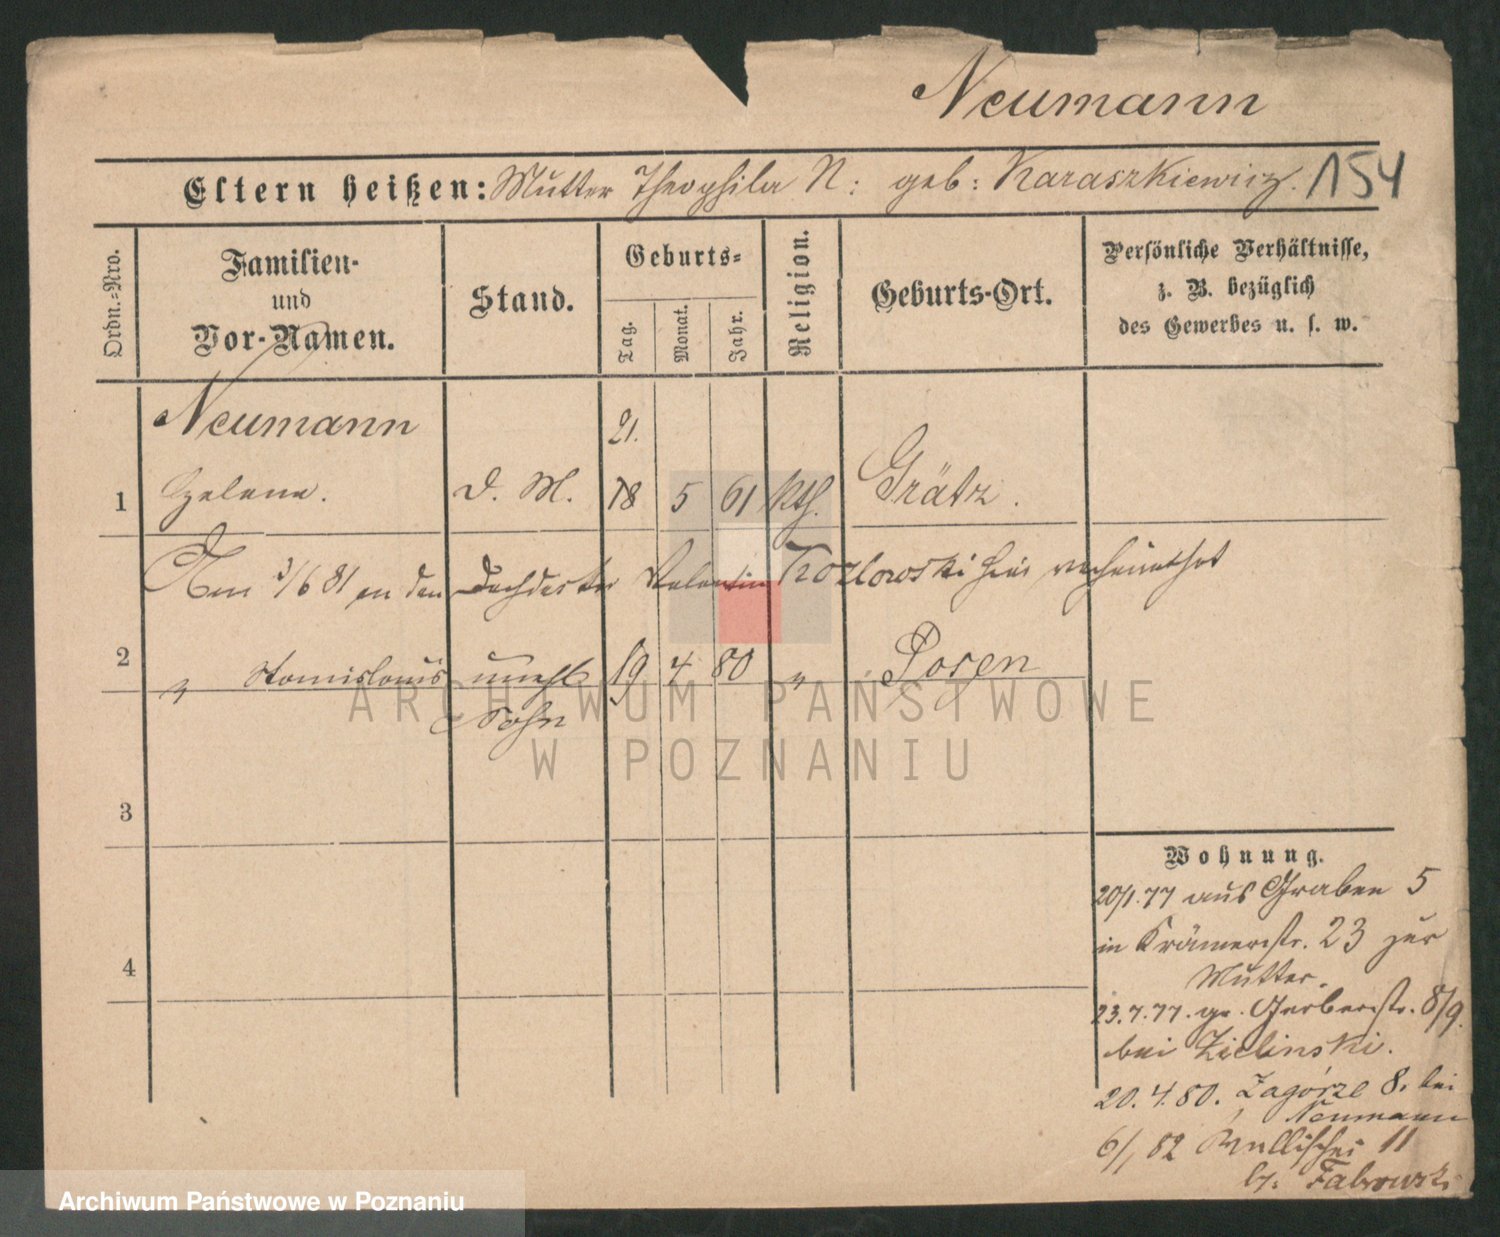 Neumann
Eltern heißen: Mutter Theophila N: geb: Karaszkiewicz. 154
Ordn.-Nro.
Familien-
und
Vor-Namen.
Stand.
Geburts-
Tag.
Monat.
Jahr.
Religion.
Geburts-Ort.
Persönliche Verhältnisse,
z. B. bezüglich
des Gewerbes u. s. w.
Neumann 21.
1 Helena. D. M. 18 5 61 kth. Grätz.
Am 3/6 81 an den Dachdecker Valentin Kozlowski hier verheirathet
2 " Stanislaus unehl 19 4 80 " Posen
Sohn
3
4
Wohnung.
20/1.77 aus Graben 5
in Krämerstr. 23 zur
Mutter.
23.7.77. gr. Gerberstr. 8/9.
bei Zielinski.
20.4.80. Zagórze 8. bei
Neumann
6/1 82 11
b. Fabrowski
ARCHIWUM PAŃSTWOWE
W POZNANIU
Archiwum Państwowe w Poznaniu